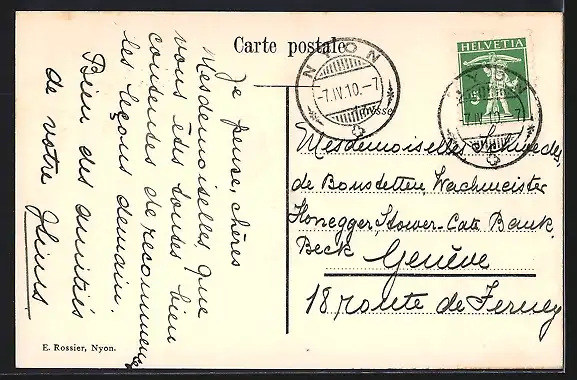 Carte postale
Je pense, chères
Mesdemoiselles, que
vous êtes toutes bien
contentes de recommencer
les leçons demain.
Bien des amitiés
de votre
E. Rossier, Nyon.
NYON
-7.IV.10.-7
HELVETIA
5
NYON
7.IV.10.
Mesdemoiselles
de Bonstetten, Wachmeister
Honegger, Stower-Cato Bank,
Beck
Genève
18 route de Ferney